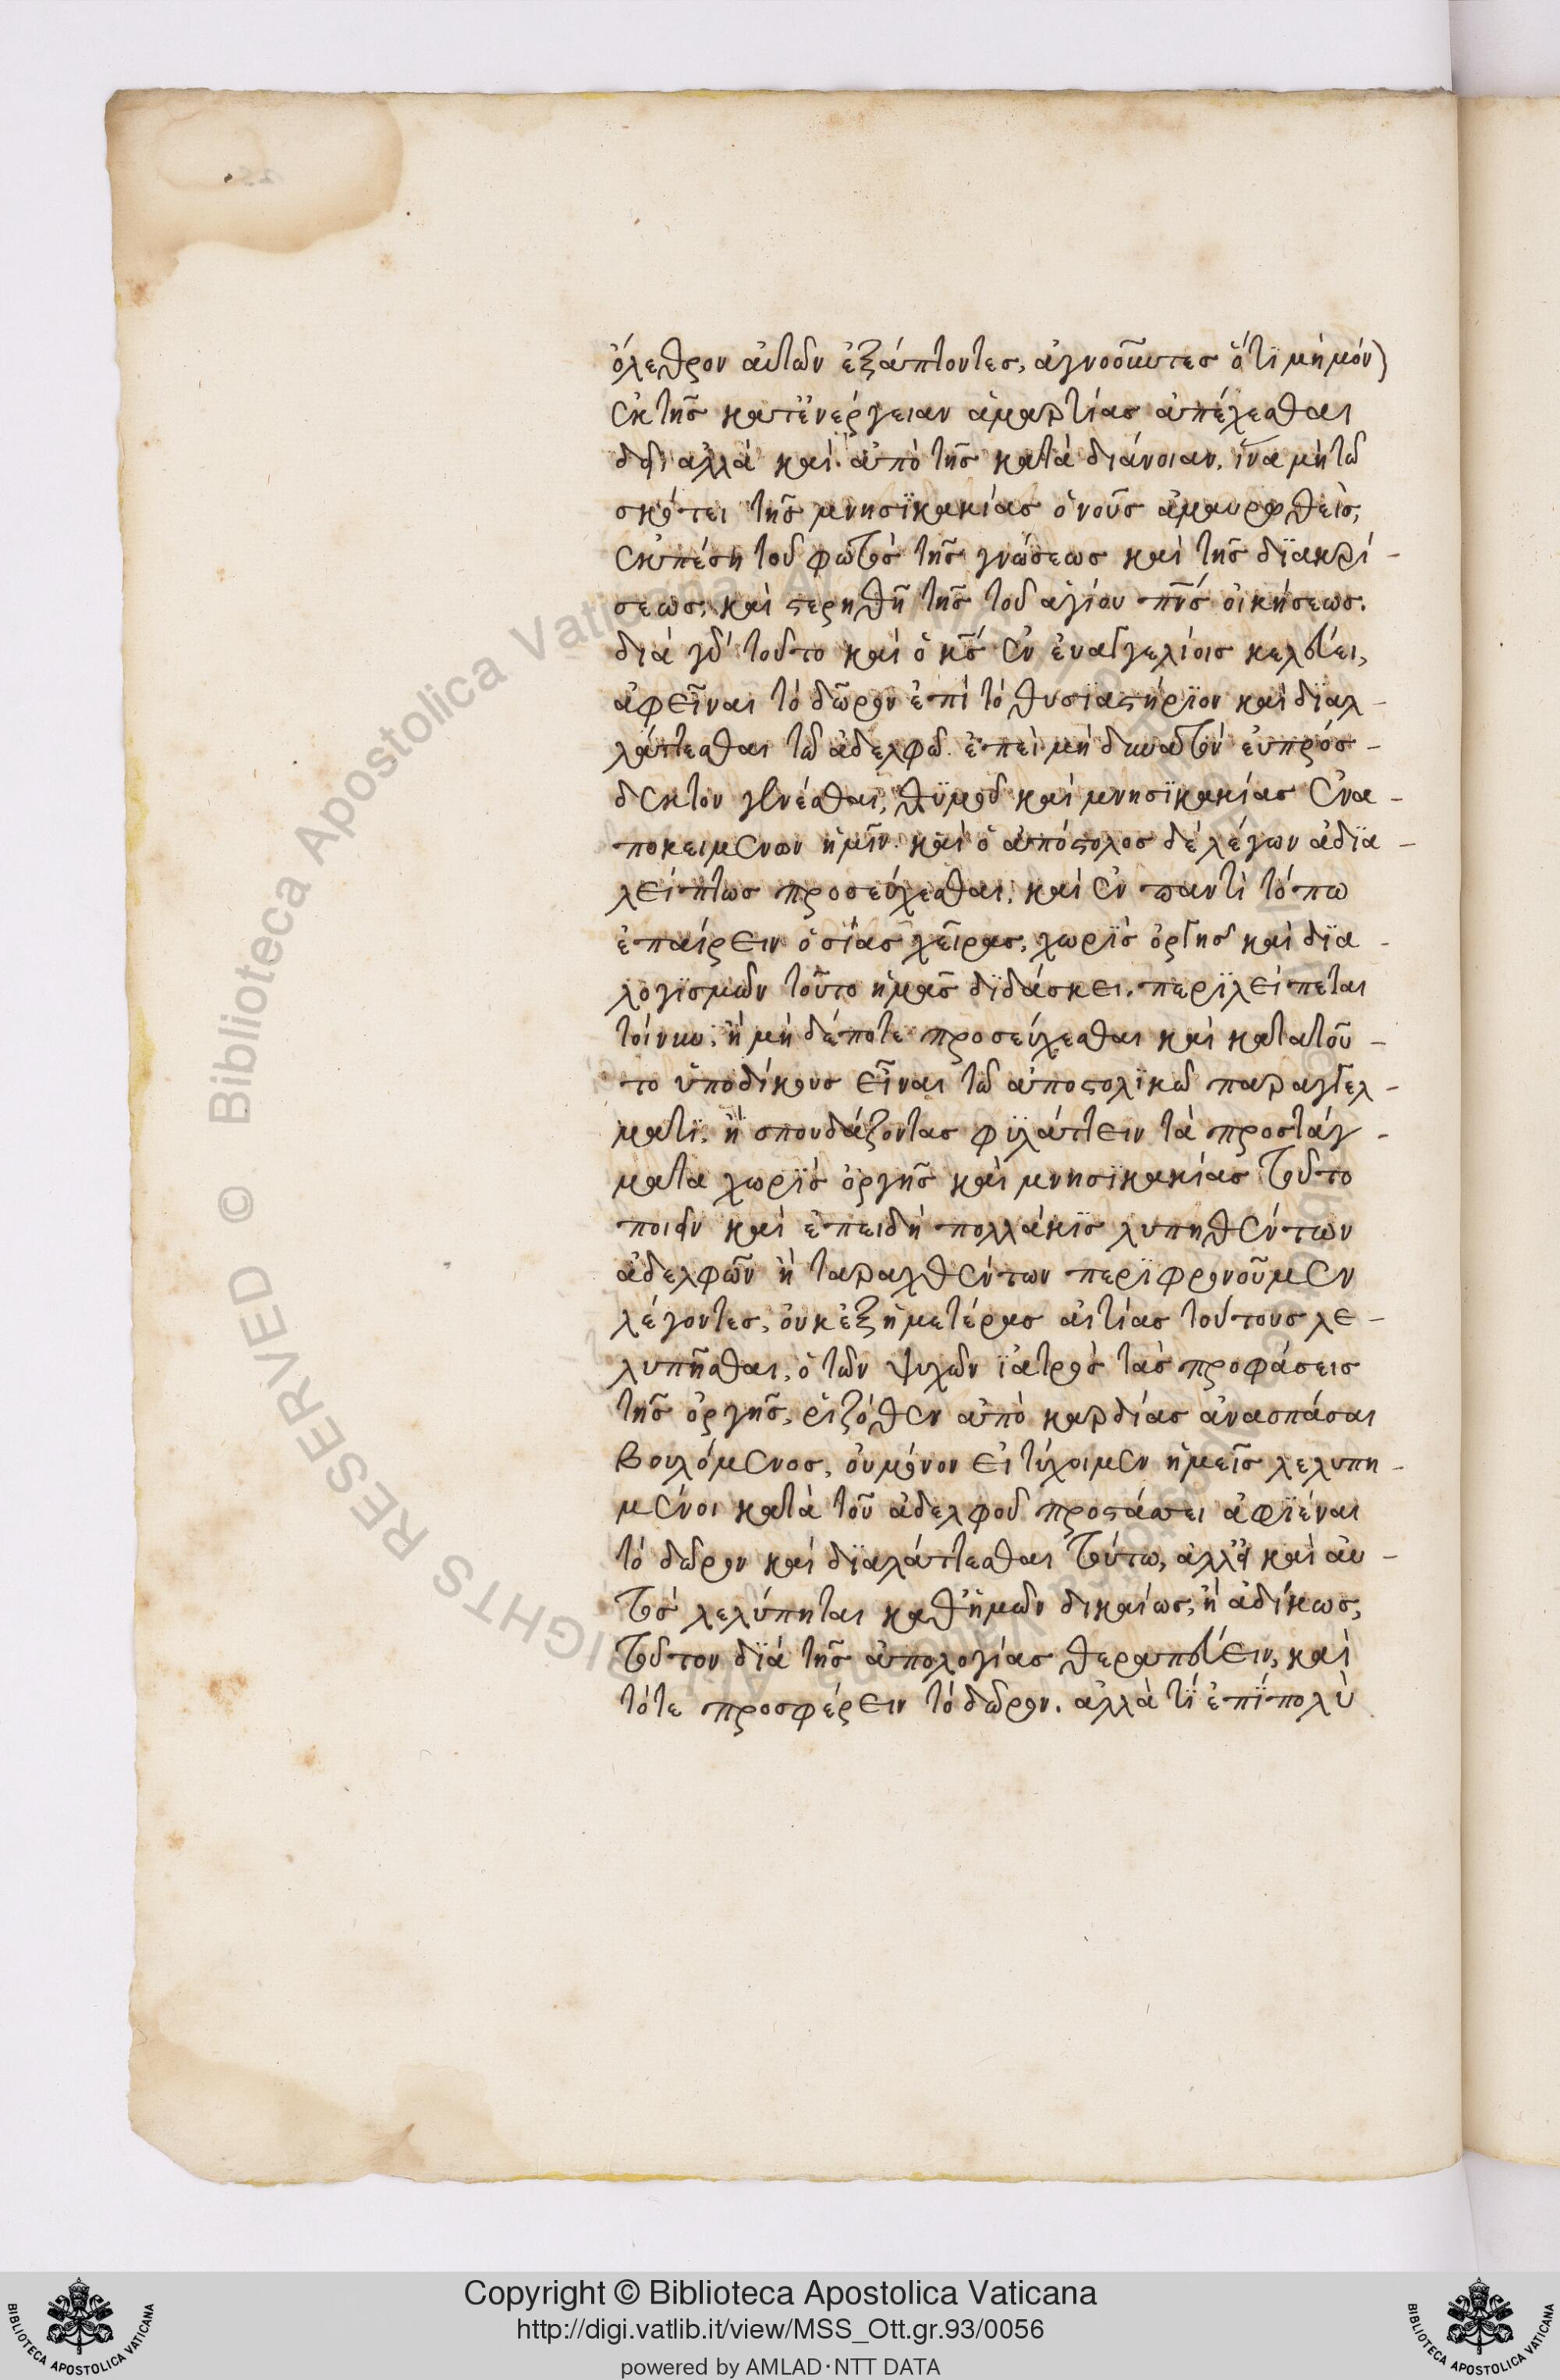 ὄλεθρον αὐτῶν ἐξάπτοντες, ἀγνοοῦντες ὅτϊ μὴ μόν)
ἐκ τῆς κατἐνέργειαν ἁμαρτίας ἀπέχεσθαι
δεῖ ἀλλὰ καὶ ἀπὸ τῆς κατὰ διάνοιαν. ἵνα μὴ τῶ
σκότει τῆς μνησϊκακίας ὁ νοῦς ἀμαυρωθεὶς,
ἐκπέση τοῦ φωτὸς τῆς γνώσεως καὶ τῆς δϊακρί-
σεως, καὶ στερηθῆ τῆς τοῦ ἁγίου πνς οἰκήσεως.
διὰ γὰρ τοῦτο καὶ ὁ κς ἐν ἐυαγγελίοις κελεύει,
ἀφεῖναι τὸ δῶρον ἐπὶ τὸ θυσϊαστήρϊον καὶ δϊαλ-
λάττεσθαι τῶ ἀδελφῶ. ἐπεὶ μὴ δυνατὸν ἐυπρόσ-
δεκτον γενέσθαι, θϋμοῦ καὶ μνησϊκακίας ἐνα-
ποκειμένων ἡμῖν. καὶ ὁ ἀπόστολος δὲ λέγων ἀδϊα-
λείπτως προσεύχεσθαι, καὶ ἐν παντὶ τόπω
ἐπαίρειν ὁσΐας χεῖρας, χωρϊς ὀργῆς καὶ δϊα-
λογϊσμῶν τοῦτο ἡμᾶς δϊδάσκει. περϊλείπεται
τοίνυν, ἢ μὴ δέποτε προσεύχεσθαι καὶ κατατοῦ-
το ὑποδίκους εἶναι τῶ ἀποστολϊκῶ παραγγέλ-
ματϊ, ἢ σπουδάζοντας φϋλάττειν τὰ προστάγ-
ματα χωρϊς ὀργῆς καὶ μνησϊκακίας τοῦτο
ποιεῖν καὶ ἐπειδὴ πολλάκϊς λυπηθέντων
ἀδελφῶν ἢ ταραχθέντων περϊφρονοῦμεν
λέγοντες, ὀυκ ἐξ ἡμετέρας αἰτίας τούτους λε-
λυπῆσθαι, ὁ τῶν ψυχῶν ϊατρὸς τὰς προφάσεις
τῆς ὀργῆς, ῥιζόθεν ἀπὸ καρδίας ἀνασπάσαι
βουλόμενος, ὀυ μόνον εἰ τύχοιμεν ἡμεῖς λελυπη-
μένοι κατὰ τοῦ ἀδελφοῦ προστάττει ἀφϊέναι
τὸ δῶρον καὶ δϊαλάττεσθαι τούτω, ἀλλ' εἰ καὶ ἀυ-
τὸς λελύπηται καθ' ἡμῶν δικαίως, ἢ ἀδίκως,
τοῦτον δϊὰ τῆς ἀπολογίας θεραπεύειν, καὶ
τότε προσφέρειν τὸ δῶρον. ἀλλὰ τΐ ἐπϊπολὺ
Copyright © Biblioteca Apostolica Vaticana
http://digi.vatlib.it/view/MSS_Ott.gr.93/0056
powered by AMLAD·NTT DATA